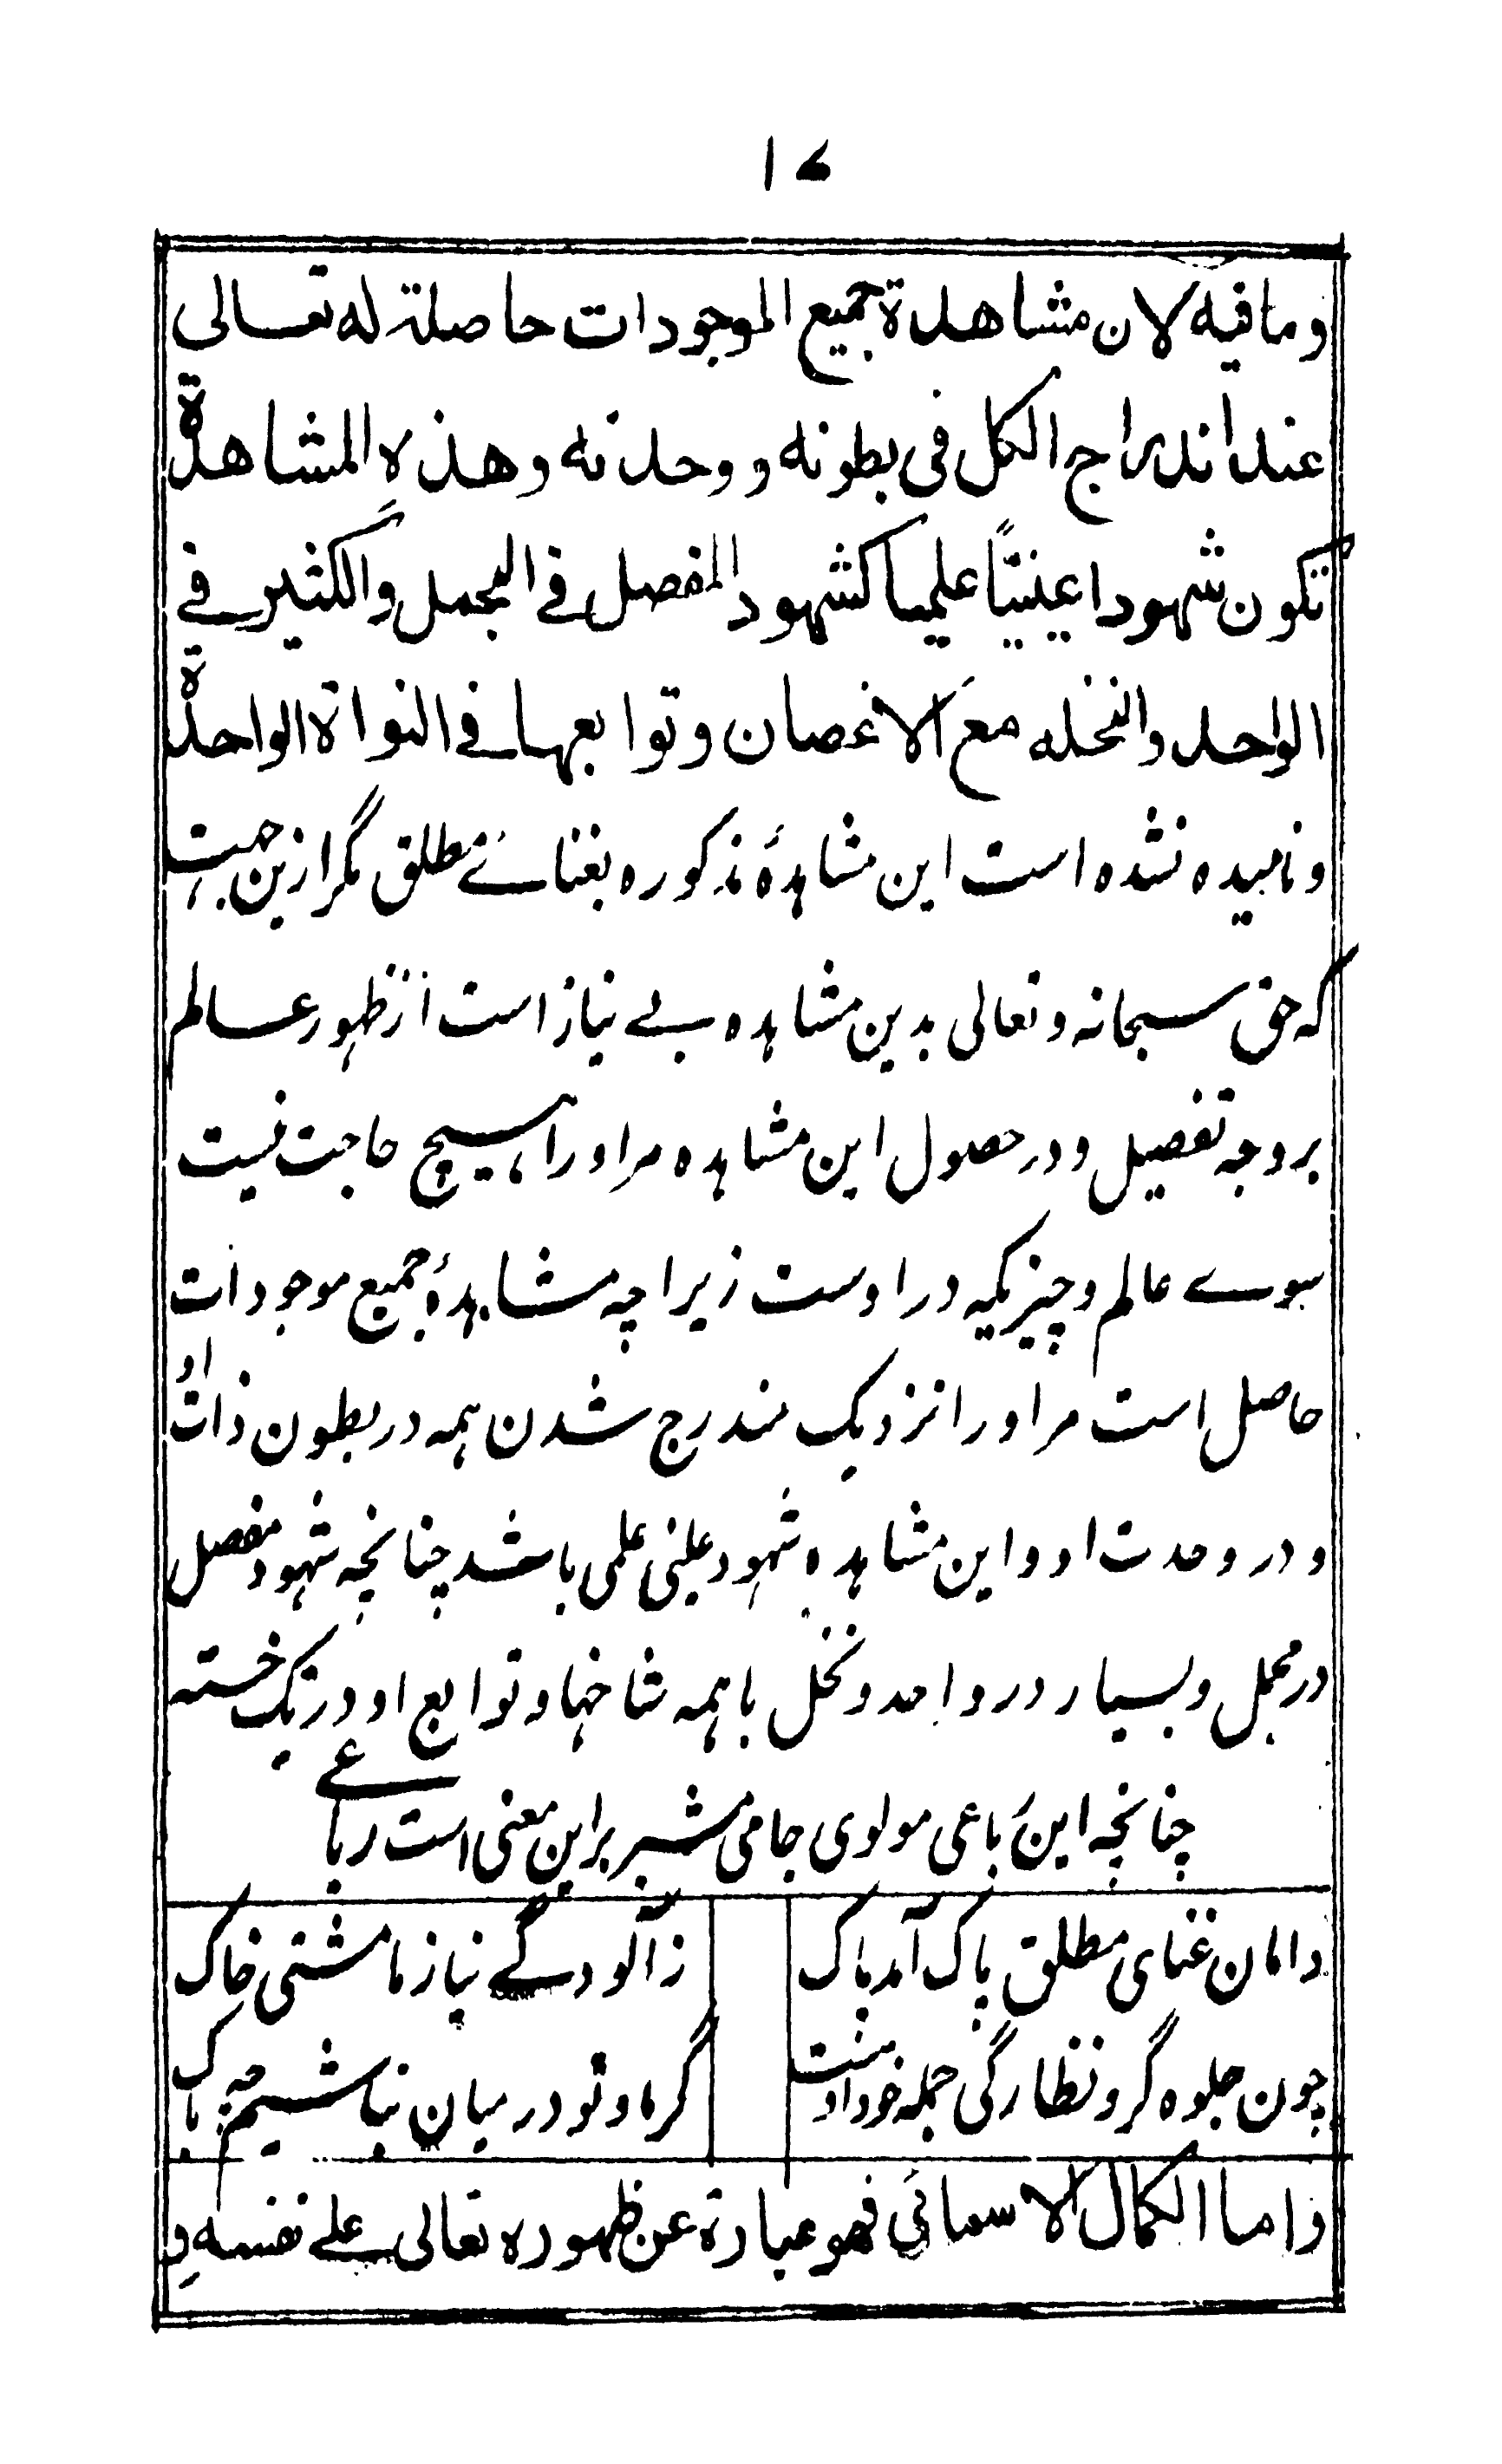 ۱۷
وما فيه لان مشاهدة جميع الموجودات حاصلة له تعالى
عند اندراج الكل فى بطونه ووحدته وهذه المشاهدة
تكون شهودا عينيّاً علميا كشهود المفصل فے المجمل والكثير فے
الواحد والنخله مع الاغصان وتوابعها فے النواة الواحدة
و نامیده نشده است این مشاهدۀ مذکوره بغنائے مطلق مگر ازین جهت
که حق سبحانه و تعالی بدین مشاهده بے نیاز است از ظهور عالم
بر وجه تفصیل و در حصول این مشاهده مر او را هیچ حاجت نیست
سوے عالم و چیزیکه در اوست زیراچه مشاهدۀ جمیع موجودات
حاصل است مر او را نزدیک مندرج شدن همه در بطون ذات او
و در وحدت او و این مشاهده شهود عینی علمی باشد چنانچه شهود مفصل
در مجمل و بسیار در واحد و نخل با همه شاخها و توابع او در یک خسته
چنانچه این رباعی مولوی جامی مشیر بر این معنی است رباعے
دامان غنای مطلق پاک آمد پاک
ز آلودگے نیاز ما مشتی خاک
چون جلوه گر و نظارگی جمله خود اوست
گر ما و تو در میان نباشیم چه باک
واما الكمال الاسمائي فهو عبارة عن ظهوره تعالى علے نفسه و